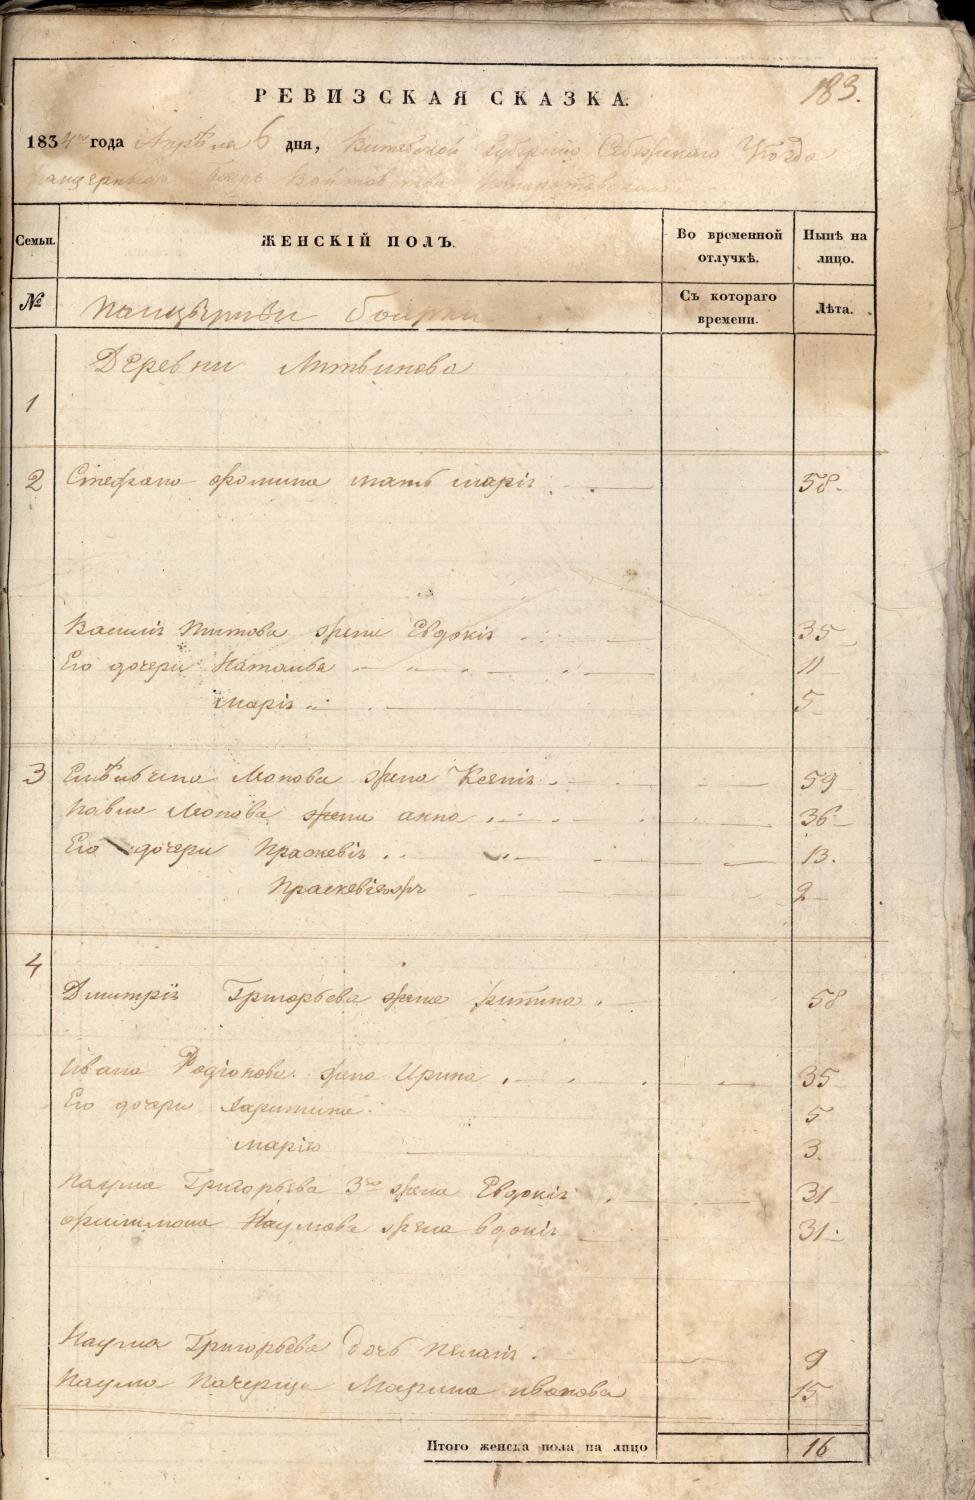 183.
РЕВИЗСКАЯ СКАЗКА.
1834го года Апрѣля 6 дня, Витебской губерніи Себежскаго Уѣзда
Панцерныхъ Бояръ Войтовства
Семьи. ЖЕНСКІЙ ПОЛЪ. Во временной отлучкѣ. Нынѣ на лицо.
№ Панцырніи боярки Съ котораго времени. Лѣта.
Деревни Литвинова
1
2 Стефана фомина мать марія 58.
Василія Титова жена Евдокія 35
Его дочери Наталья 11
марія 5
3 жена Ксенія 59
Павла жена анна 36
Его дочери Праскевія 13.
Праскевія 2
4
Дмитрія Григорьева жена 58
Ивана Родіонова жена Ирина 35
Его дочери Харитина 5
марія 3.
Наума Григорьева 3го жена Евдокія 31
филимона Наумова жена вдокія 31
Наума Григорьева дочь пелагія 9
Наума Пачерица Марина иванова 15
Итого женска пола на лицо 16